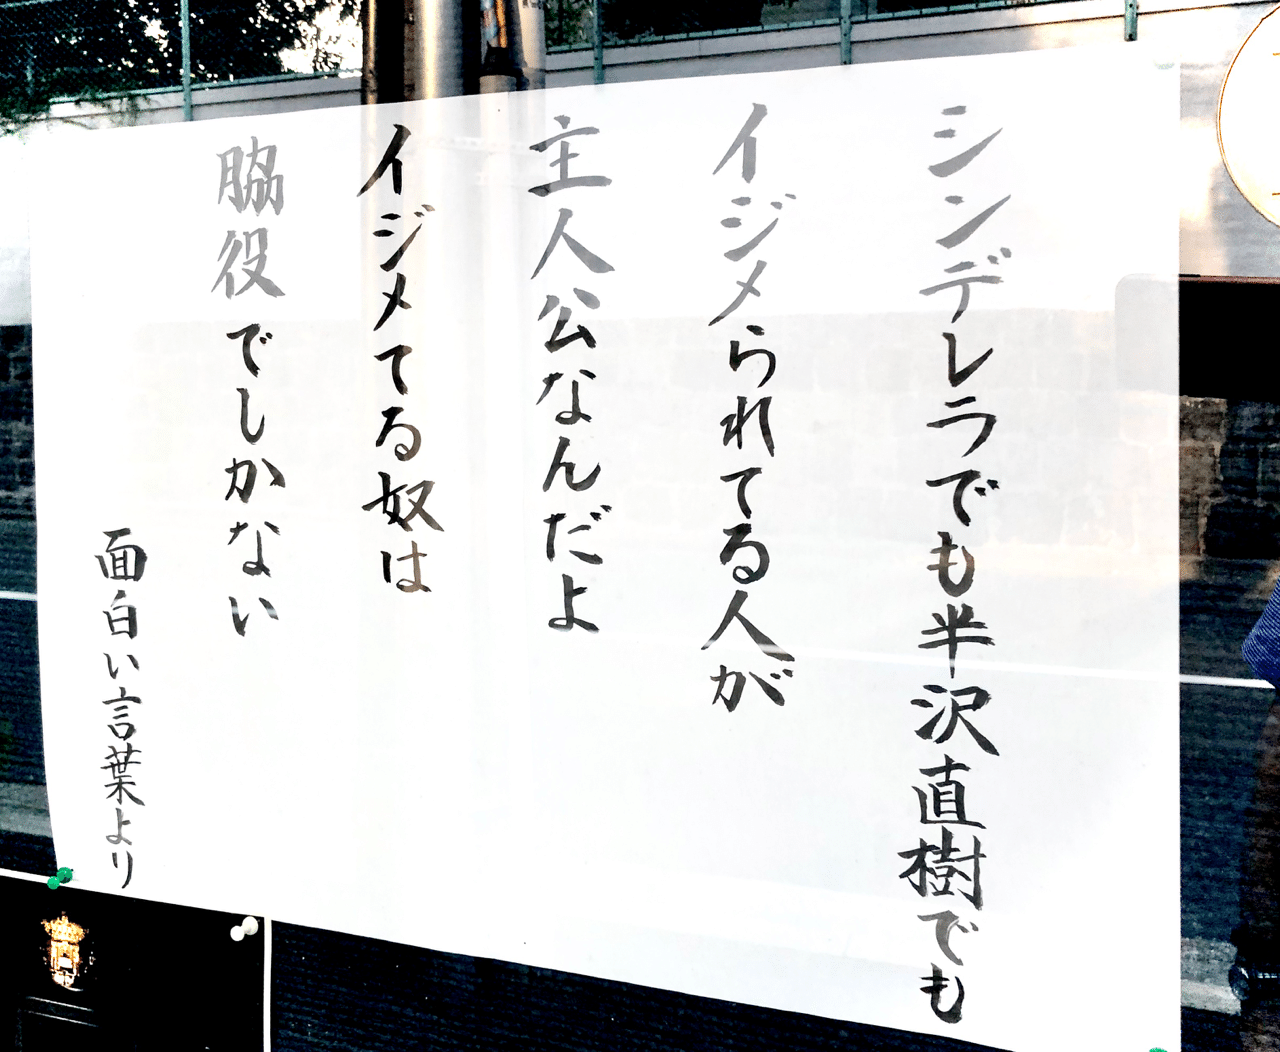 シンデレラでも半沢直樹でも
イジメられてる人が
主人公なんだよ
イジメてる奴は
脇役でしかない
面白い言葉より